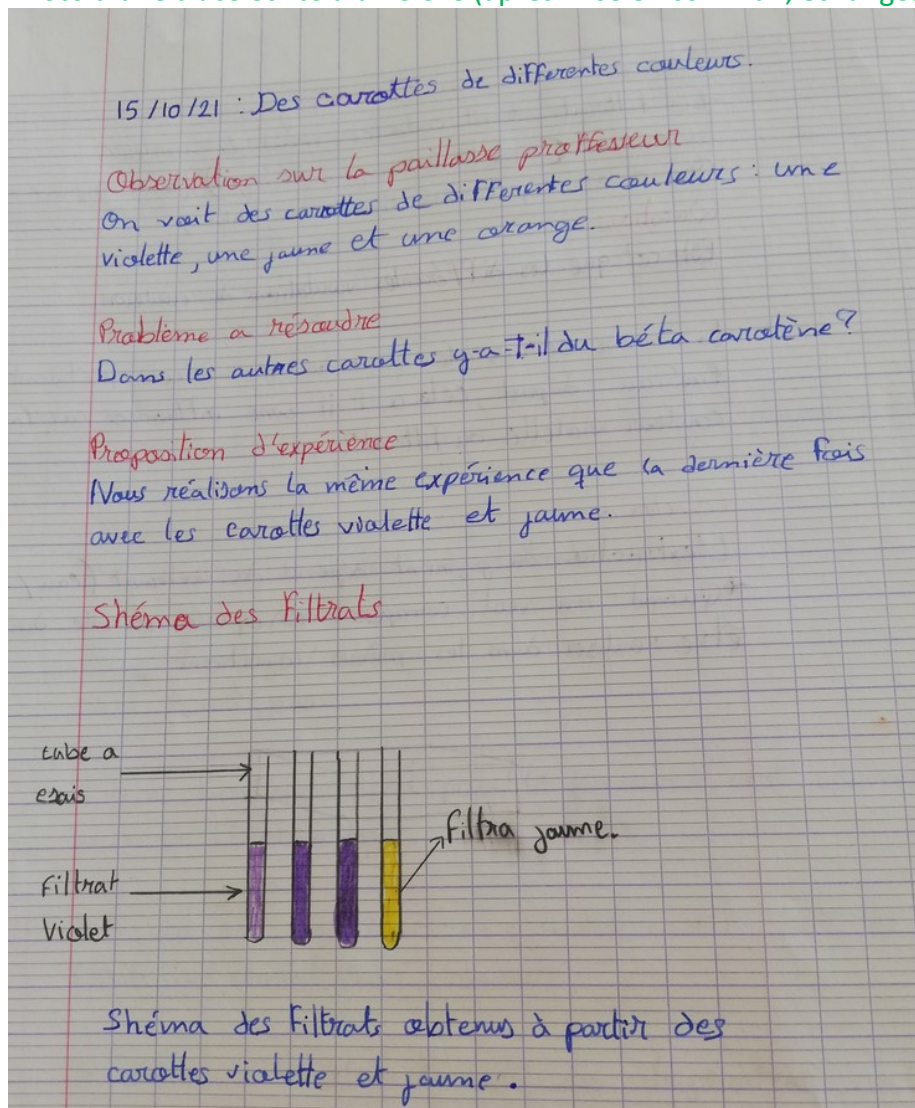 15/10/21 : Des carottes de differentes couleurs.
Observation sur la paillasse proffesseur
On voit des carottes de differentes couleurs : une
violette, une jaune et une orange.
Problème a résoudre
Dans les autres carottes y-a-t-il du béta carotène?
Proposition d'expérience
Nous réalisons la même expérience que la dernière fois
avec les carottes violette et jaune.
Shéma des Filtrats
tube a
esais
Filtrat
Violet
Filtra jaune.
Shéma des Filtrats obtenus à partir des
carottes violette et jaune.